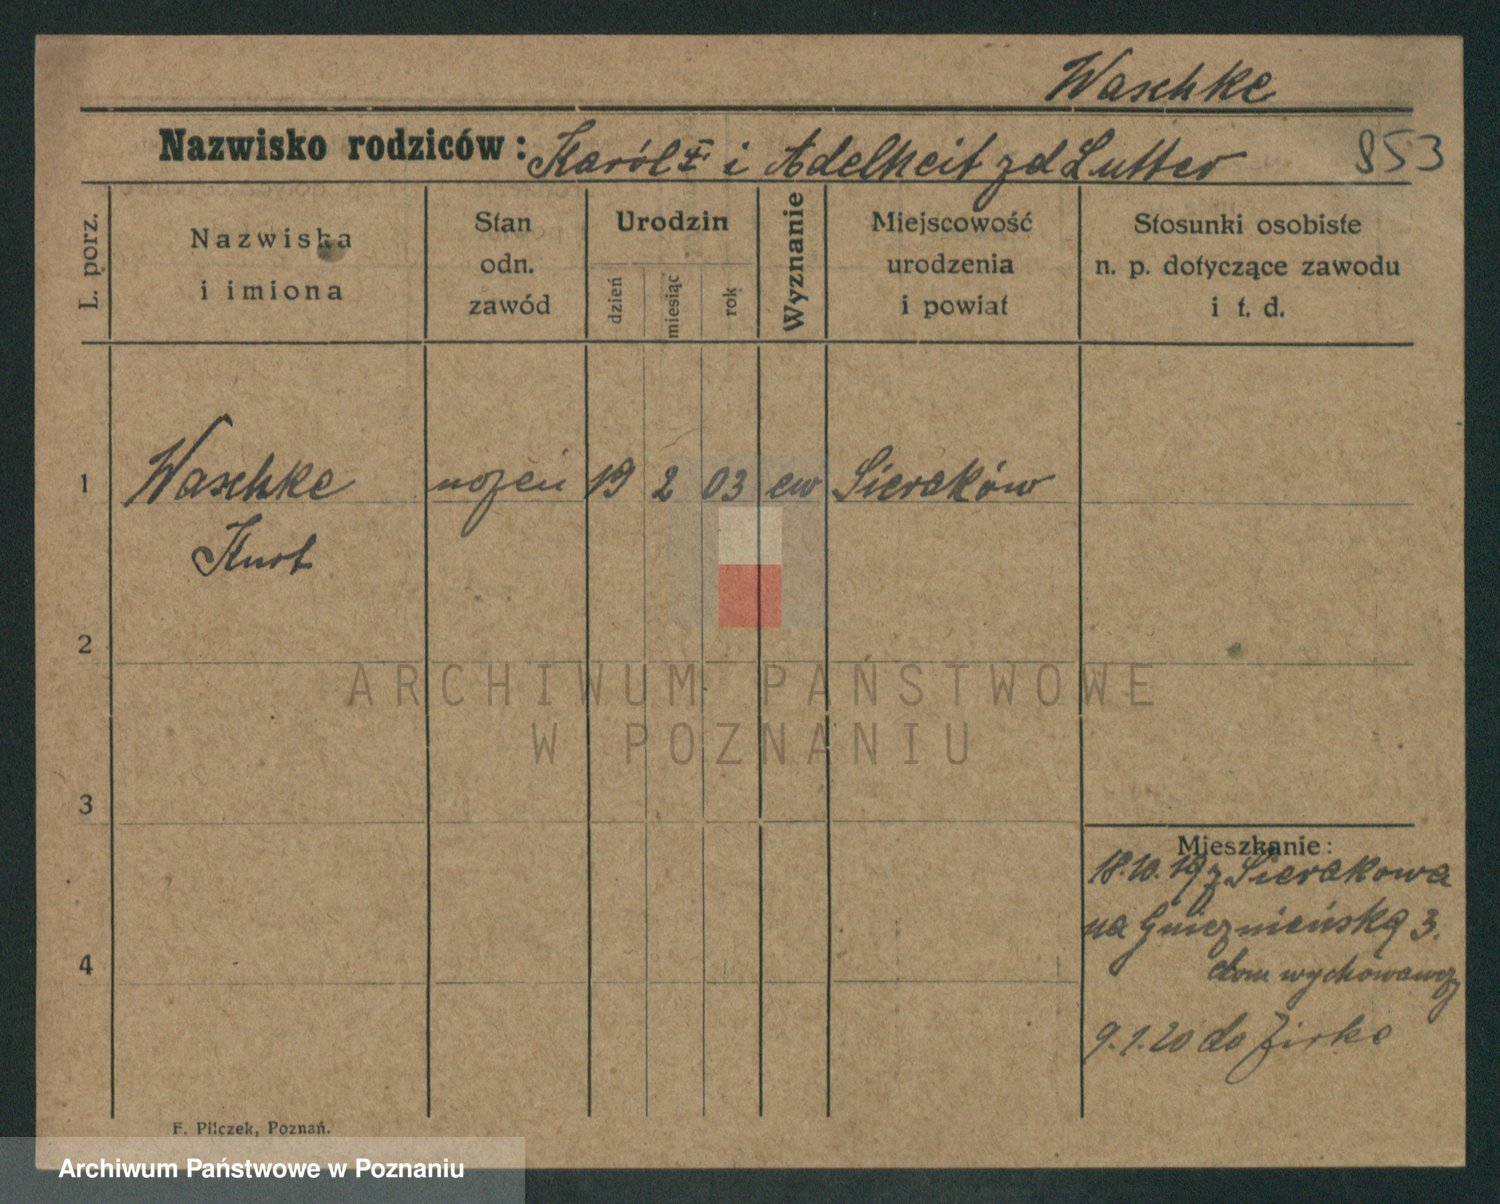 Waschke
Nazwisko rodziców: Karól i Adelheit zd Lutter
853
L. porz.
Nazwiska
i imiona
Stan
odn.
zawód
Urodzin
dzień
miesiąc
rok
Wyznanie
Miejscowość
urodzenia
i powiat
Stosunki osobiste
n. p. dotyczące zawodu
i t. d.
1
Waschke
Kurt
uczeń
19
2
03
ew
Sieraków
2
3
4
ARCHIWUM PAŃSTWOWE
W POZNANIU
Mieszkanie:
18.10.19 z Sierakowa
na Gnieznieńską 3.
dom wychowawczy
9.1.20 do Zirke
F. Pilczek, Poznań.
Archiwum Państwowe w Poznaniu